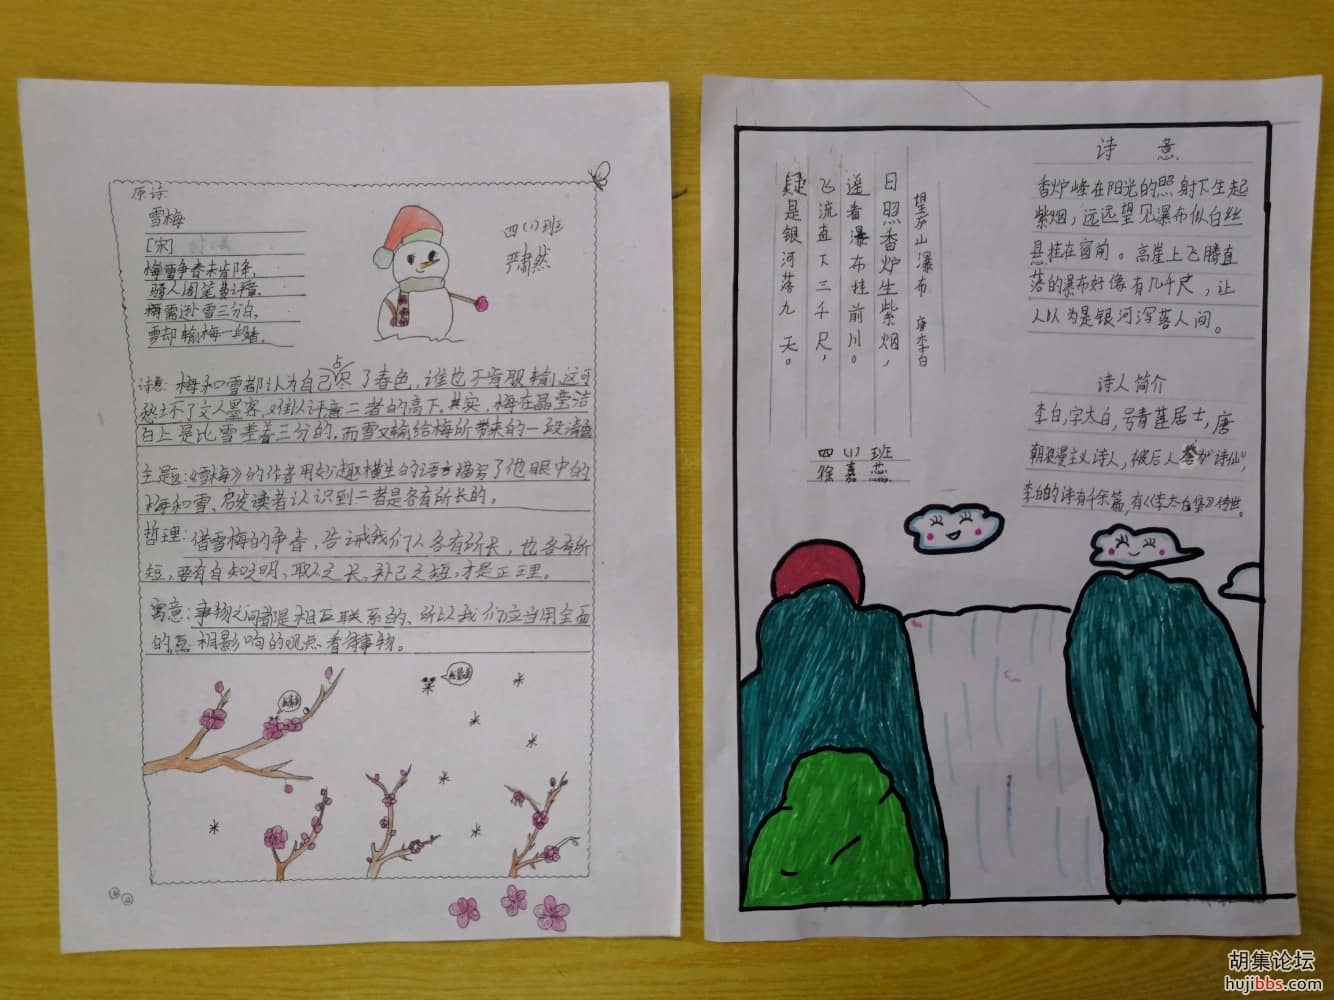 原诗:
雪梅
[宋]
梅雪争春未肯降,
骚人阁笔费评章.
梅需逊雪三分白,
雪却输梅一段香.
四(1)班
严肃然
诗意: 梅和雪都认为自己占尽了春色,谁也不肯服输.这可
愁坏了文人墨客,难以评定二者的高下.其实,梅在晶莹洁
白上是比雪差着三分的,而雪又输给梅所带来的一段清香
主题:《雪梅》的作者用妙趣横生的语言描写了他眼中的
梅和雪、启发读者认识到二者是各有所长的。
哲理: 借雪梅的争春,告诫我们人各有所长,也各有所
短,要有自知之明、取人之长,补己之短,才是正理。
寓意:事物之间都是相互联系的、所以我们应当用全面
的互相影响的观点看待事物。
望庐山瀑布 唐李白
日照香炉生紫烟,
遥看瀑布挂前川。
飞流直下三千尺,
疑是银河落九天。
四(1)班
徐嘉蕊
诗意
香炉峰在阳光的照射下生起
紫烟,远远望见瀑布似白丝
悬挂在窗前。高崖上飞腾直
落的瀑布好像有几千尺,让
人以为是银河泻落人间。
诗人简介
李白,字太白,号青莲居士,唐
朝浪漫主义诗人,被后人誉为“诗仙”,
李白的诗有千余篇,有《李太白集》传世。
胡集论坛
hujibbs.com